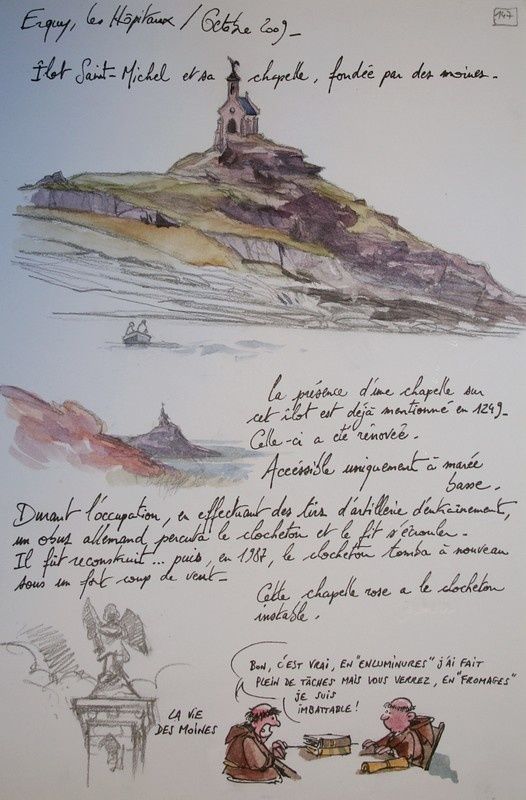 Erquy, les Hôpitaux / Octobre 2009_
147
Îlot Saint-Michel et sa chapelle, fondée par des moines_
La présence d'une chapelle sur
cet îlot est déjà mentionné en 1249_
Celle-ci a été rénovée.
Accéssible uniquement à marée
basse.
Durant l'occupation, en effectuant des tirs d'artillerie d'entraînement,
un obus allemand percuta le clocheton et le fit s'écrouler_
Il fût reconstruit... puis, en 1987, le clocheton tomba à nouveau
sous un fort coup de vent_
Cette chapelle rose a le clocheton
instable.
BON, C'EST VRAI, EN "ENLUMINURES" J'AI FAIT
PLEIN DE TÂCHES MAIS VOUS VERREZ, EN "FROMAGES"
JE SUIS
IMBATTABLE!
LA VIE
DES MOINES